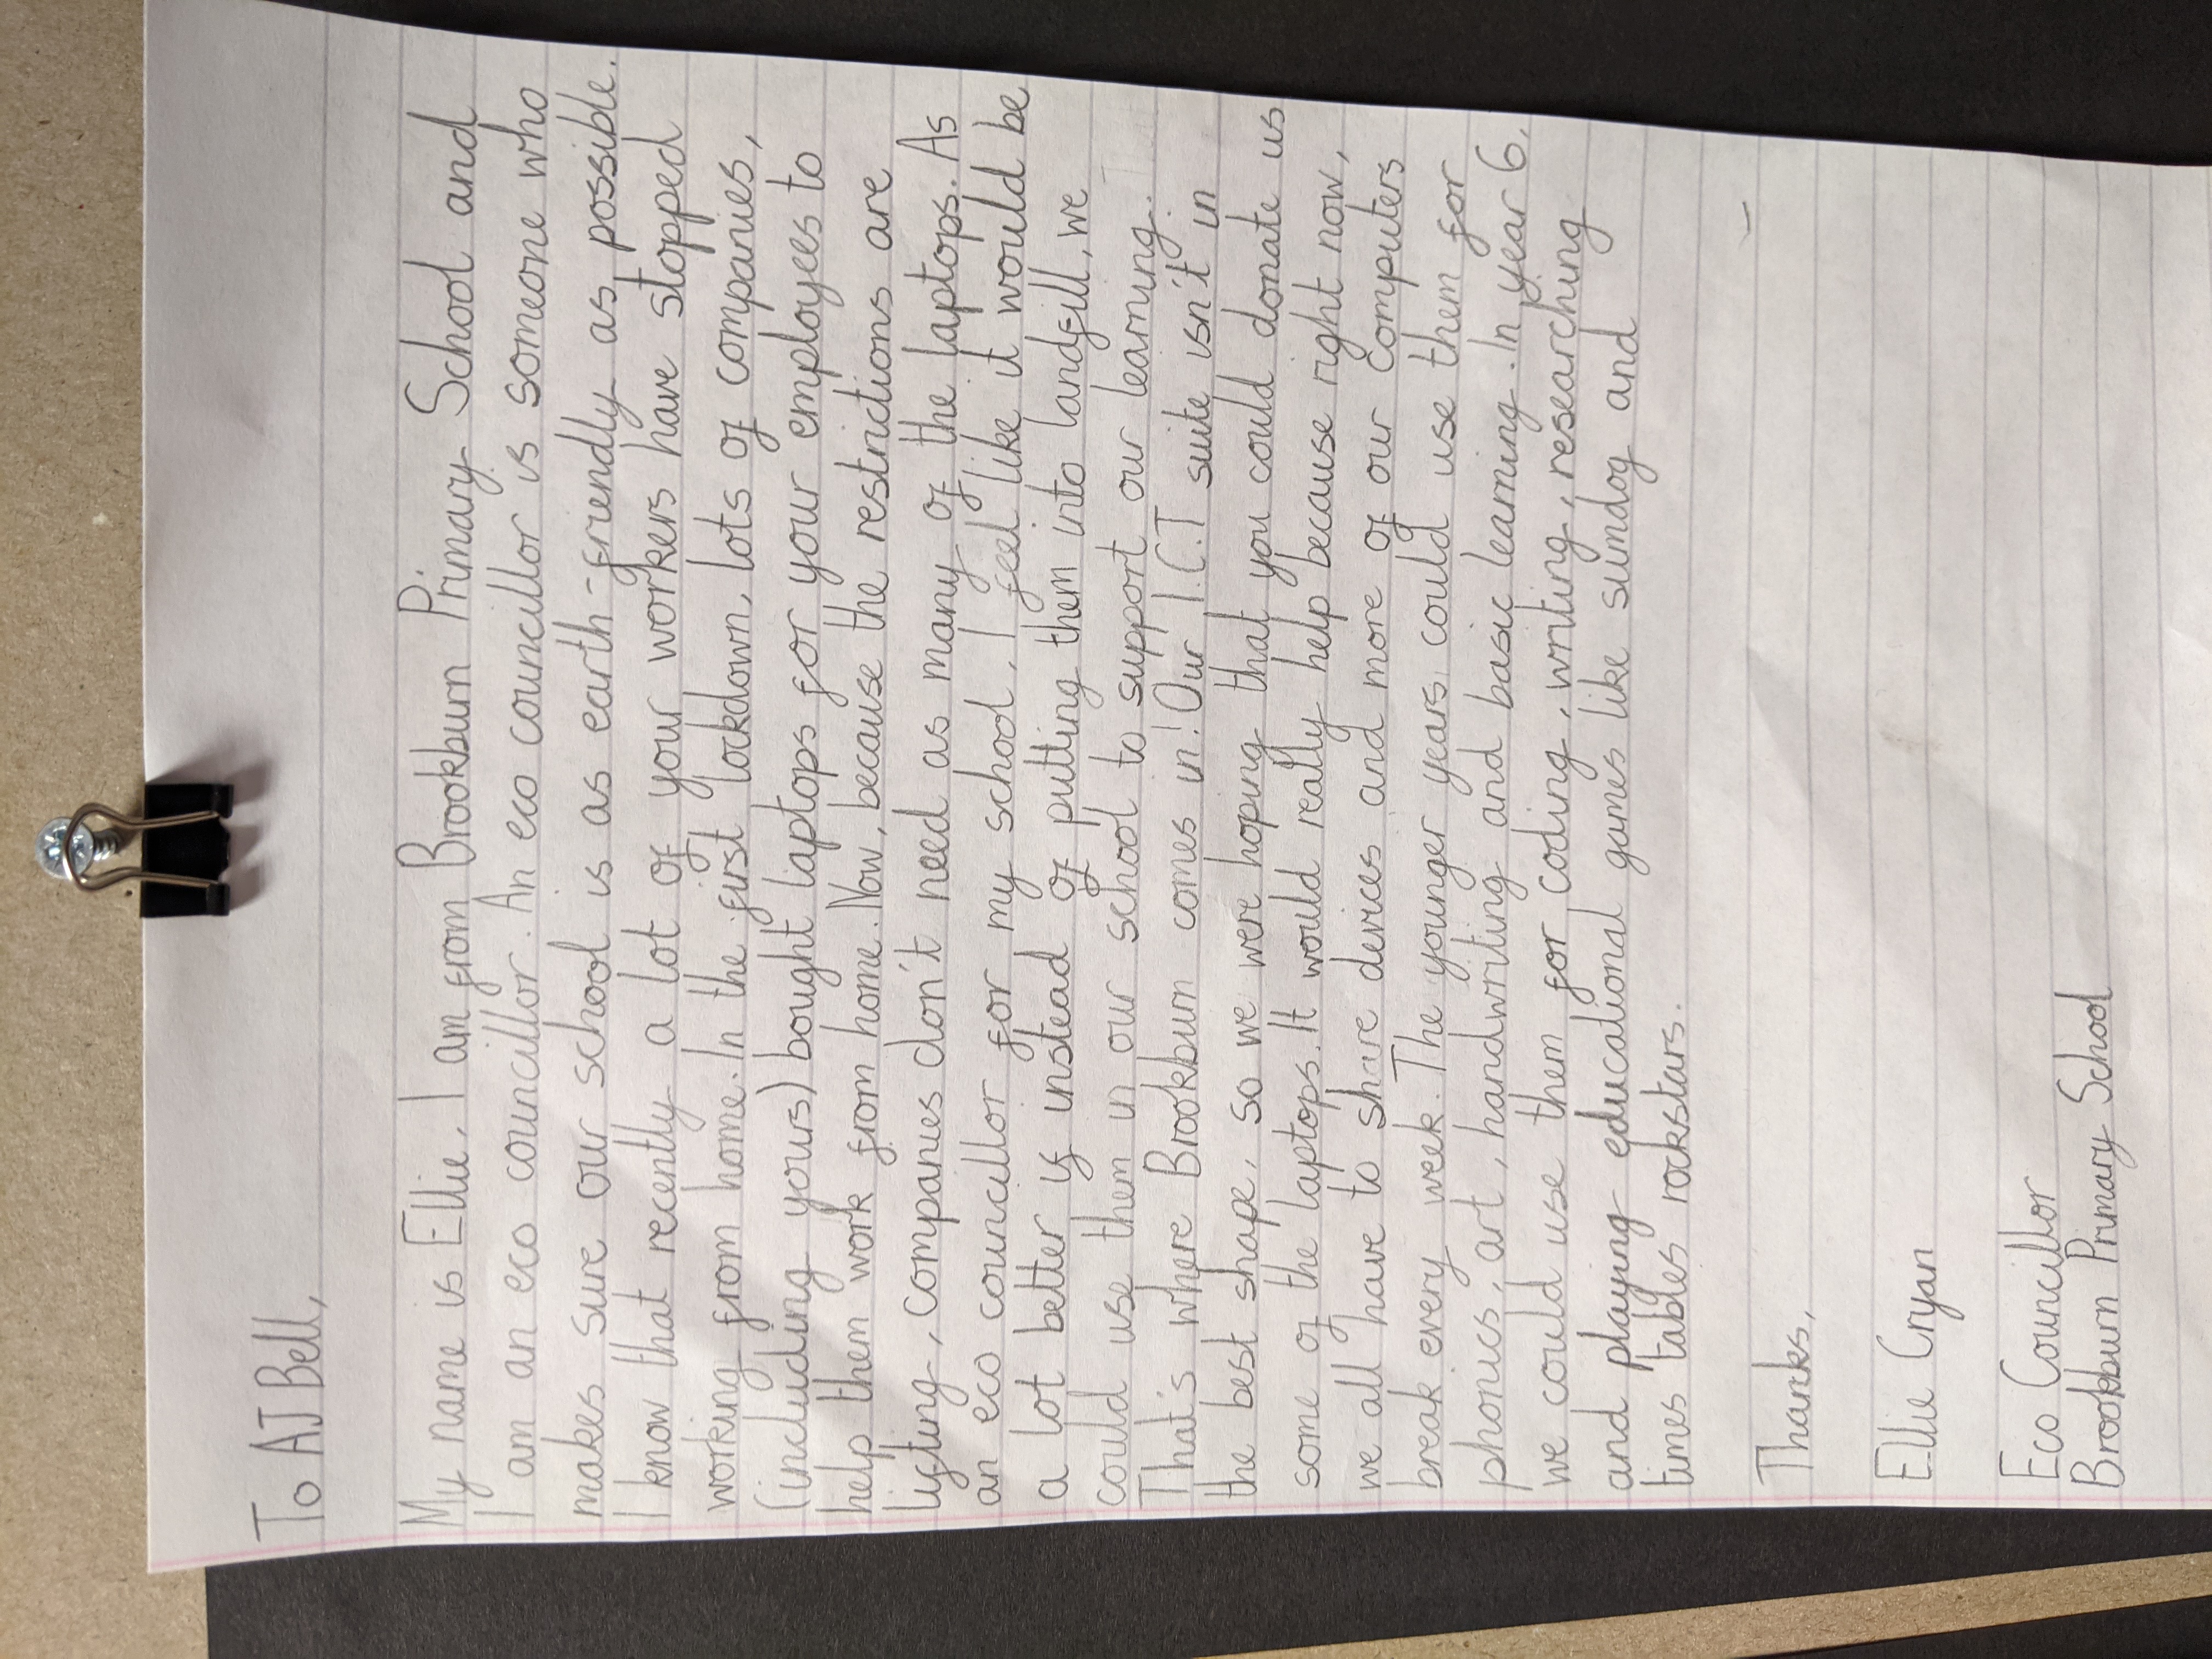 To AJ Bell,
My name is Ellie. I am from Brookburn Primary School and
I am an eco councillor. An eco councillor is someone who
makes sure our school is as earth-friendly as possible.
I know that recently a lot of your workers have stopped
working from home. In the first lockdown, lots of companies,
(including yours) bought laptops for your employees to
help them work from home. Now, because the restrictions are
lifting, companies don't need as many of the laptops. As
an eco councillor for my school, I feel like it would be
a lot better if instead of putting them into landfill, we
could use them in our school to support our learning.
That's where Brookburn comes in! Our I.C.T suite isn't in
the best shape, so we were hoping that you could donate us
some of the laptops. It would really help because right now,
we all have to share devices and more of our computers
break every week. The younger years could use them for
phonics, art, handwriting and basic learning. In year 6,
we could use them for coding, writing, researching
and playing educational games like sumdog and
times tables rockstars.
Thanks,
Ellie Cryan
Eco Councillor
Brookburn Primary School